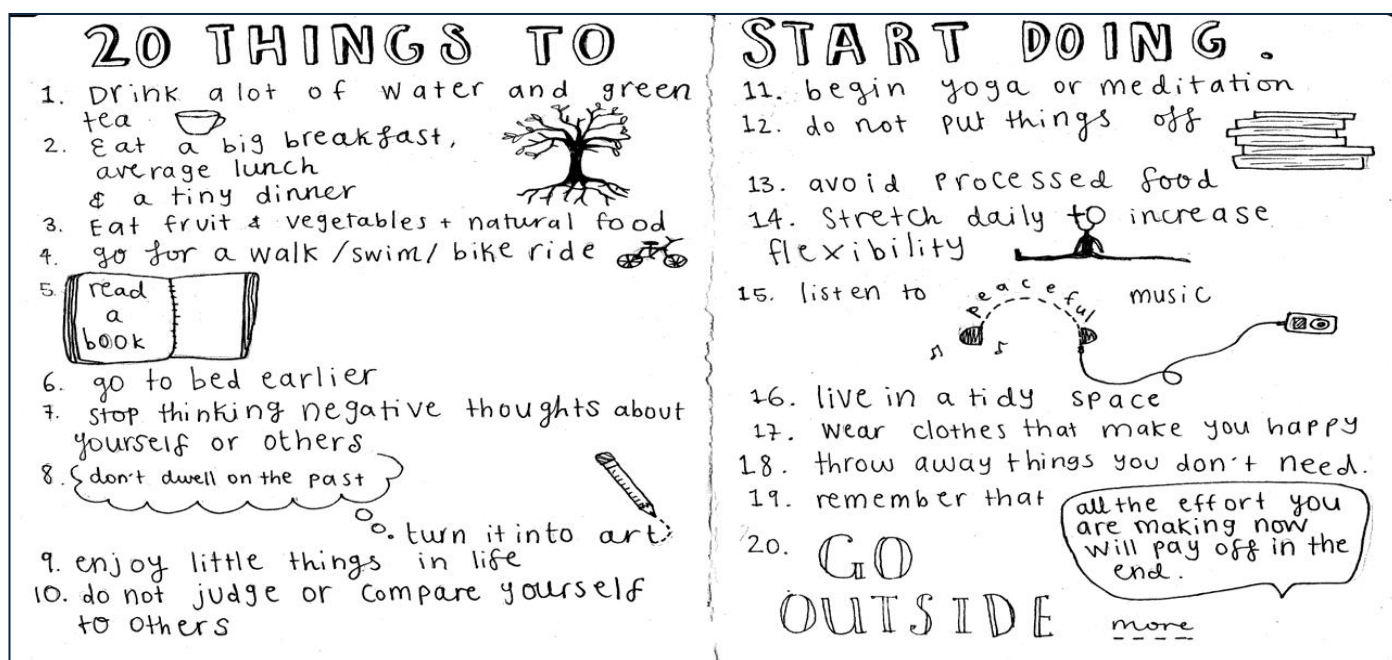 20 THINGS TO
1. Drink alot of water and green
tea
2. Eat a big breakfast,
average lunch
& a tiny dinner
3. Eat fruit & vegetables + natural food
4. go for a walk /swim/ bike ride
5. read
a
book
6. go to bed earlier
7. stop thinking negative thoughts about
yourself or others
8. don't dwell on the past
turn it into art
9. enjoy little things in life
10. do not judge or compare yourself
to others
START DOING.
11. begin yoga or meditation
12. do not put things off
13. avoid processed food
14. stretch daily to increase
flexibility
15. listen to peaceful music
16. live in a tidy space
17. wear clothes that make you happy
18. throw away things you don't need.
19. remember that
all the effort you
are making now
will pay off in the
end.
20. GO
OUTSIDE more